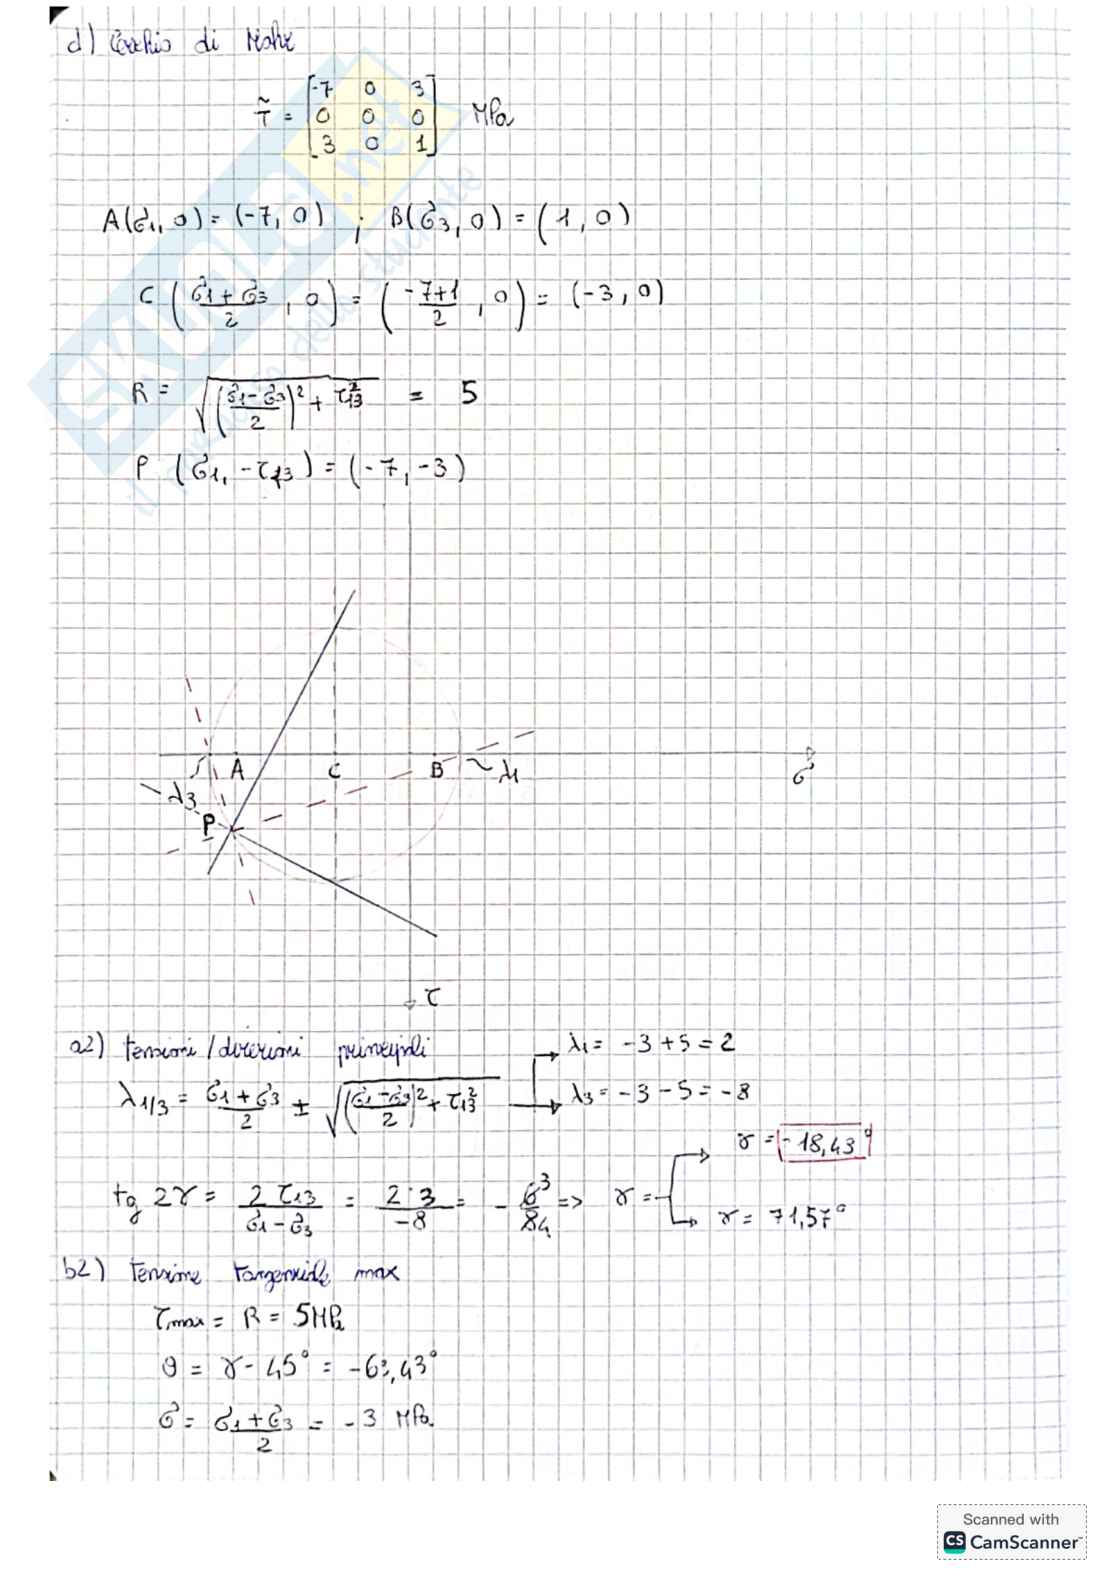 d) Cerchio di Mohr
T̃ = [-7 0 3
0 0 0
3 0 1] MPa
A(σ1, 0) = (-7, 0) ; B(σ3, 0) = (1, 0)
C (σ1 + σ3 / 2 , 0) = (-7+1 / 2 , 0) = (-3, 0)
R = √((σ1 - σ3 / 2)² + τ13²) = 5
P (σ1, -τ13) = (-7, -3)
A C B λ1 σ
λ3
P
τ
a2) tensioni / direzioni principali
λ1/3 = σ1 + σ3 / 2 ± √((σ1 - σ3 / 2)² + τ13²) → λ1 = -3 + 5 = 2
→ λ3 = -3 - 5 = -8
tg 2γ = 2 τ13 / σ1 - σ3 = 2·3 / -8 = - 6 3 / 8 4 => γ = → γ = -18,43°
→ γ = 71,57°
b2) tensione tangenziale max
τmax = R = 5 MPa
θ = γ - 45° = -63,43°
σ = σ1 + σ3 / 2 = -3 MPa
SKUOLA.net
il paradiso dello studente
Scanned with
CS CamScanner